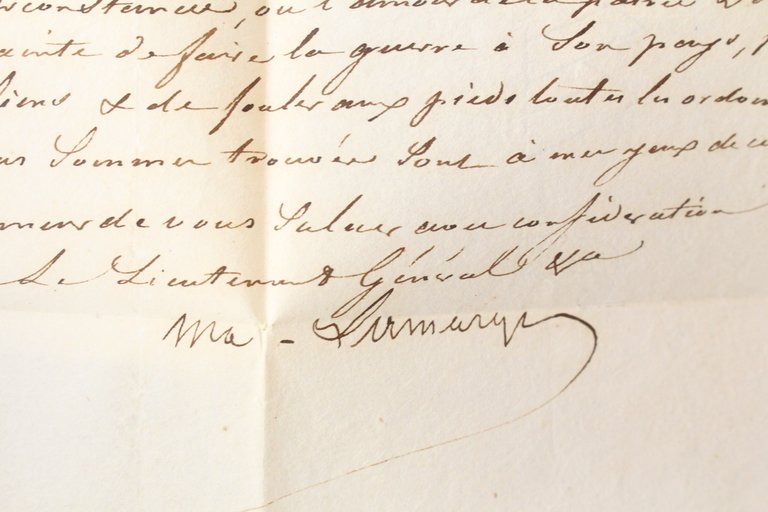 constances, ou l'amour de la patrie
ainte de faire la guerre à son pays,
liens & de fouler aux pieds toutes les ordon
us sommes trouvés sont à mes yeux de
neur de vous saluer avec considération
Le Lieutenant Général &ca
Ma - Lamarque